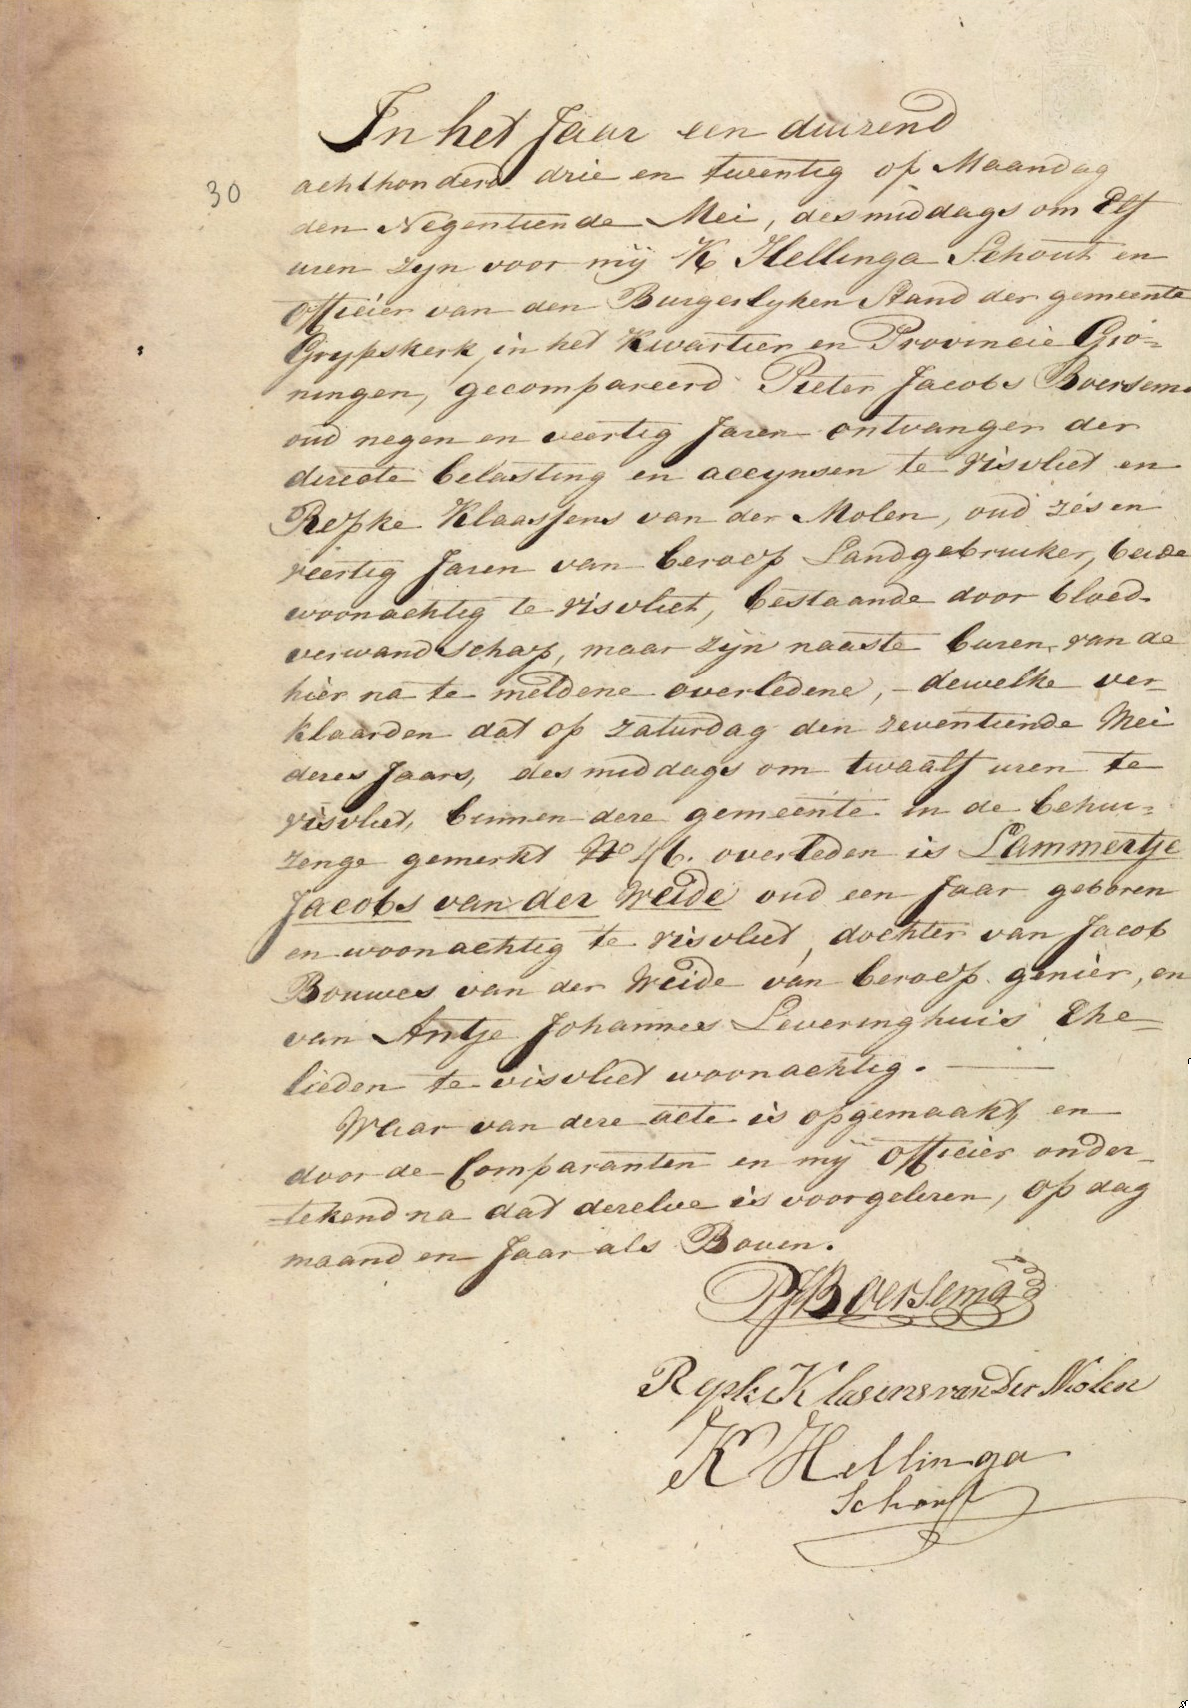 In het Jaar een duizend
30
achthonderd drie en twentig op Maandag
den Negentiende Mei, des middags om Elf
uren zyn voor mij K Hellinga Schout en
officier van den Burgerlyken Stand der gemeente
Grypskerk, in het Kwartier en Provincie Gro=
ningen, gecompareerd Pieter Jacobs Boersema
oud negen en veertig Jaren ontvanger der
directe belasting en accynsen te visvliet en
Repke Klaassens van der Molen, oud zes en
veertig Jaren van beroep Landgebruiker, beide
woonachtig te visvliet, bestaande door bloed-
verwandschap, maar zijn naaste buren van de
hier na te meldene overledene, - dewelke ver-
klaarden dat op zaturdag den zeventiende Mei
dezes Jaars, des middags om twaalf uren te
visvliet, binnen deze gemeente in de behui=
zenge gemerkt No 46. overleden is Lammertje
Jacobs van der Weide oud een Jaar geboren
en woonachtig te visvliet, dochter van Jacob
Bouwes van der Weide van beroep genier, en
van Antje Johannes Leveringhuis Ehe-
lieden te visvliet woonachtig. -
Waar van deze acte is opgemaakt, en
door de Comparanten en mij officier onder-
tekend na dat dezelve is voorgelezen, op dag
maand en Jaar als Boven.
PJBoersema
Repke Klasens van der Molen
K Hellinga
Schout